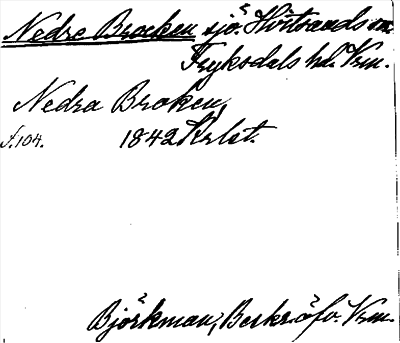 Nedre Brocken sjö. Hvitsands sn.
Fryksdals hd. Vrm.
Nedra Broken,
s. 104. 1842 Krlst.
Björkman, Berkr. öfv. Vrm.